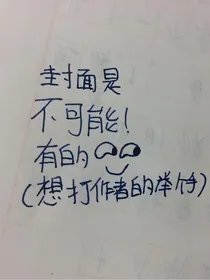 封面是
不可能!
有的
(想打作者的举行)